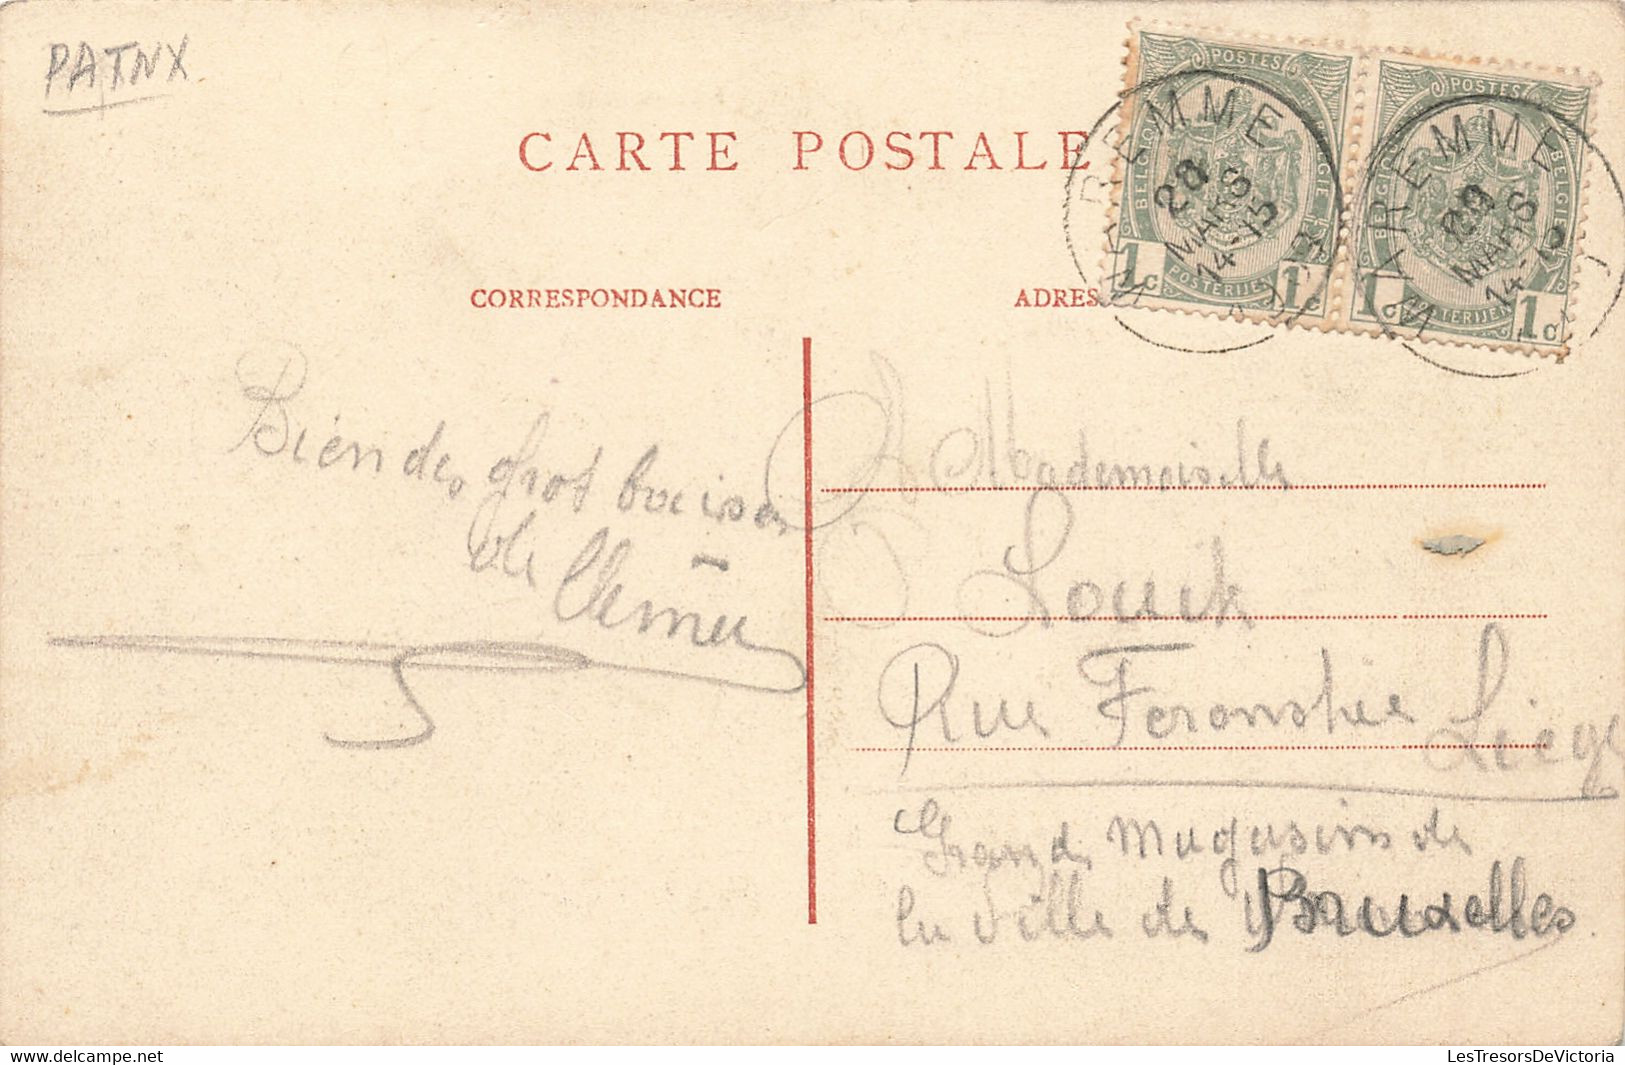 PATNX
CARTE POSTALE
CORRESPONDANCE
ADRES
POSTES
BELGIQUE BELGIE
1c POSTERIJEN 1c
POSTES
BELGIQUE BELGIE
1c POSTERIJEN 1c
WAREMME
MARS
14-15
WAREMME
MARS
14-
Bien des grot baiser
de Clemen
Mademoiselle
Louik
Rue Feronstrée
Liège
Grands Magasins de
la Ville de Bruxelles
LesTresorsDeVictoria
www.delcampe.net